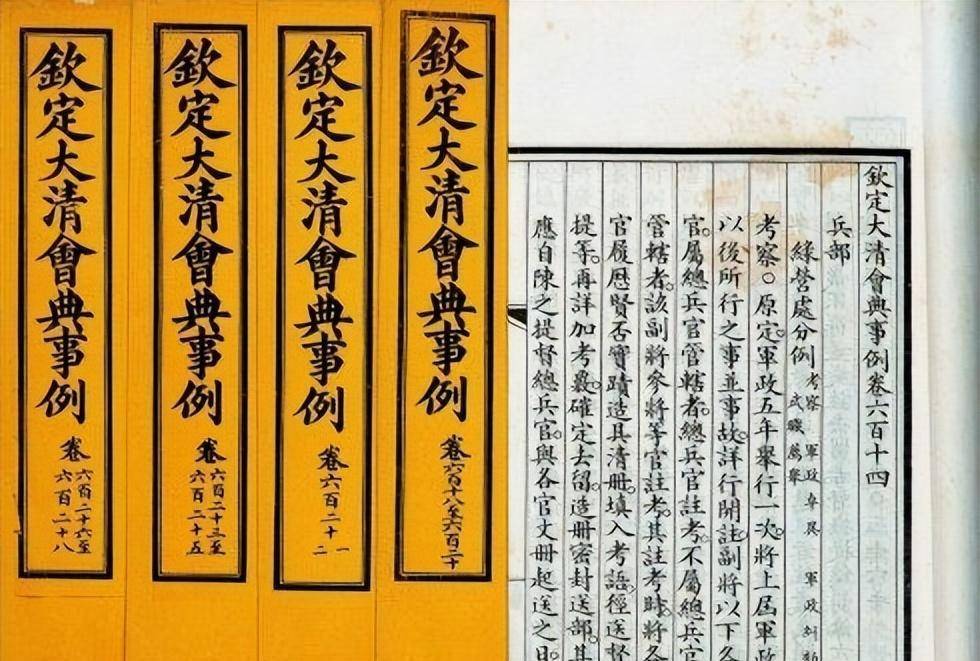 欽定大清會典事例卷六百十四
兵部
綠營處分例 考察 軍政卓異 軍政糾
武職薦舉
考察○原定軍政五年舉行一次。將上屆軍政
以後所行之事並事故。詳行開註。副將以下各
官。屬總兵官管轄者。總兵官註考。不屬總兵官
管轄者。該副將參將等官註考。其註考時。將各
官履歷賢否實蹟造具清冊。填入考語。徑送督
提等。再詳加考覈。確定去留。造冊密封送部。其
應自陳之提督總兵官。與各官文冊起送之日
欽定大清會典事例
卷六百十八至六百二十
欽定大清會典事例
卷六百二十一
二
欽定大清會典事例
卷六百二十三至
六百二十五
欽定大清會典事例
卷六百二十六至
六百二十八